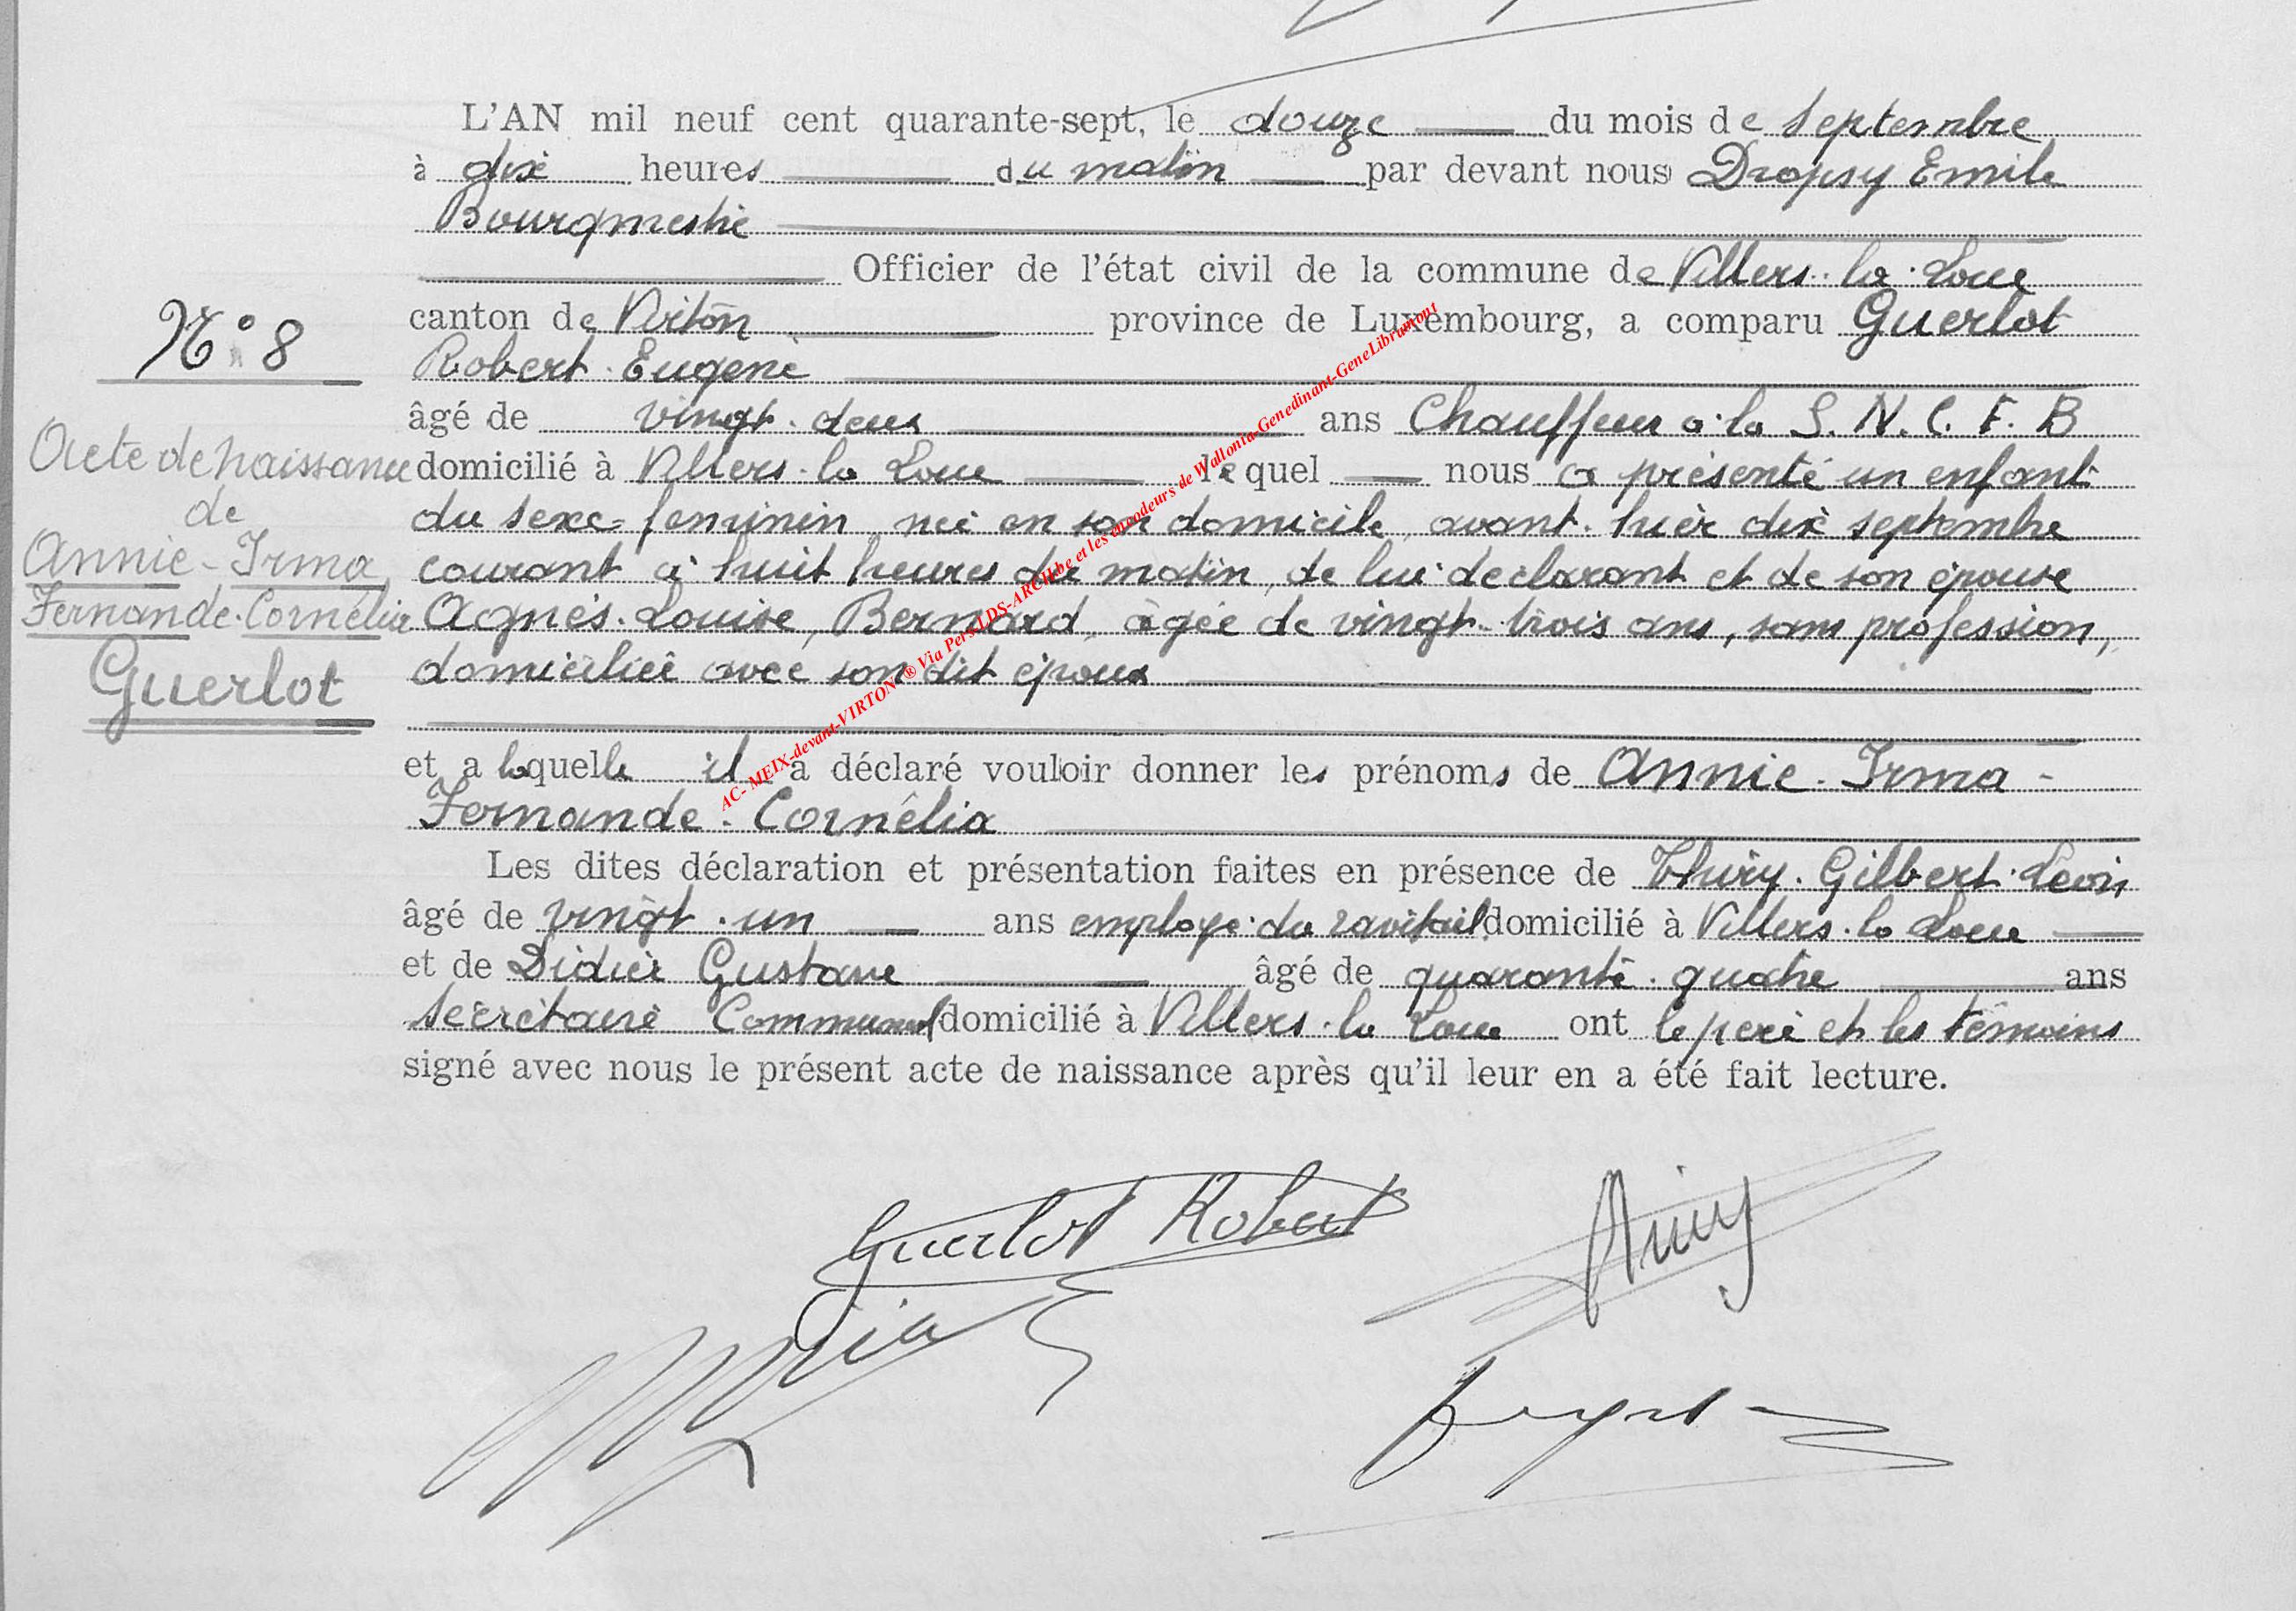 L'AN mil neuf cent quarante-sept, le douze du mois de septembre
à dix heures du matin par devant nous Dropsy Emile
Bourgmestre
Officier de l'état civil de la commune de Villers-la-Loue
canton de Virton province de Luxembourg, a comparu Guerlot
Robert-Eugène
âgé de vingt-deux ans Chauffeur à la S.N.C.F.B
domicilié à Villers-la-Loue lequel nous a présenté un enfant
du sexe féminin, né en son domicile, avant-hier dix septembre
courant à huit heures du matin, de lui déclarant et de son épouse
Agnès-Louise, Bernard, âgée de vingt-trois ans, sans profession,
domiciliée avec son dit époux
et a laquelle il a déclaré vouloir donner les prénoms de Annie-Irma-
Fernande-Cornélia
Les dites déclaration et présentation faites en présence de Thiry-Gilbert-Léon
âgé de vingt-un ans employé du ravitail. domicilié à Villers-la-Loue
et de Didier Gustave âgé de quarante-quatre ans
secrétaire Communal domicilié à Villers-la-Loue ont le père et les témoins
signé avec nous le présent acte de naissance après qu'il leur en a été fait lecture.
N° 8
Acte de naissance
de
Annie-Irma,
Fernande-Cornélia
Guerlot
AC- MEIX-devant-VIRTON ® Via Pers LDS-ARCH.be et les encodeurs de Wallonia-Genedinant-GeneLibramont
Guerlot Robert